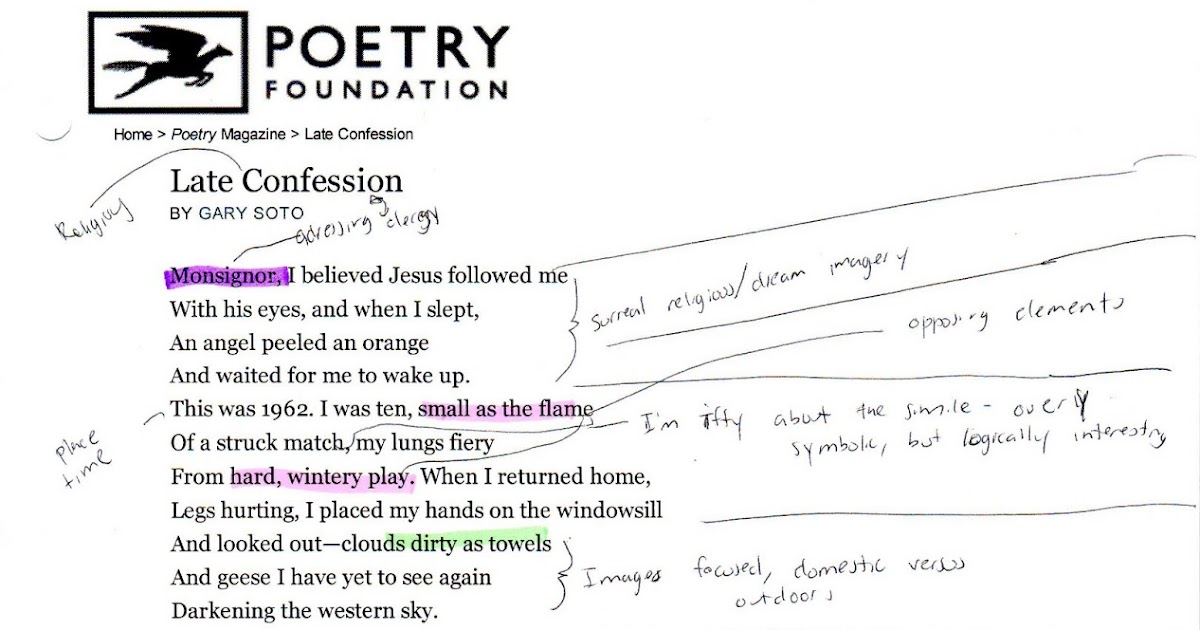 POETRY
FOUNDATION
Home > Poetry Magazine > Late Confession
Late Confession
Religious
BY GARY SOTO
adressing clergy
Monsignor, I believed Jesus followed me
With his eyes, and when I slept,
An angel peeled an orange
And waited for me to wake up.
surreal religious/dream imagery
opposing elements
This was 1962. I was ten, small as the flame
Of a struck match, my lungs fiery
From hard, wintery play. When I returned home,
Legs hurting, I placed my hands on the windowsill
And looked out—clouds dirty as towels
And geese I have yet to see again
Darkening the western sky.
Place
time
I'm iffy about the simile - overly
symbolic, but logically interesting
Images focused, domestic versus
outdoors